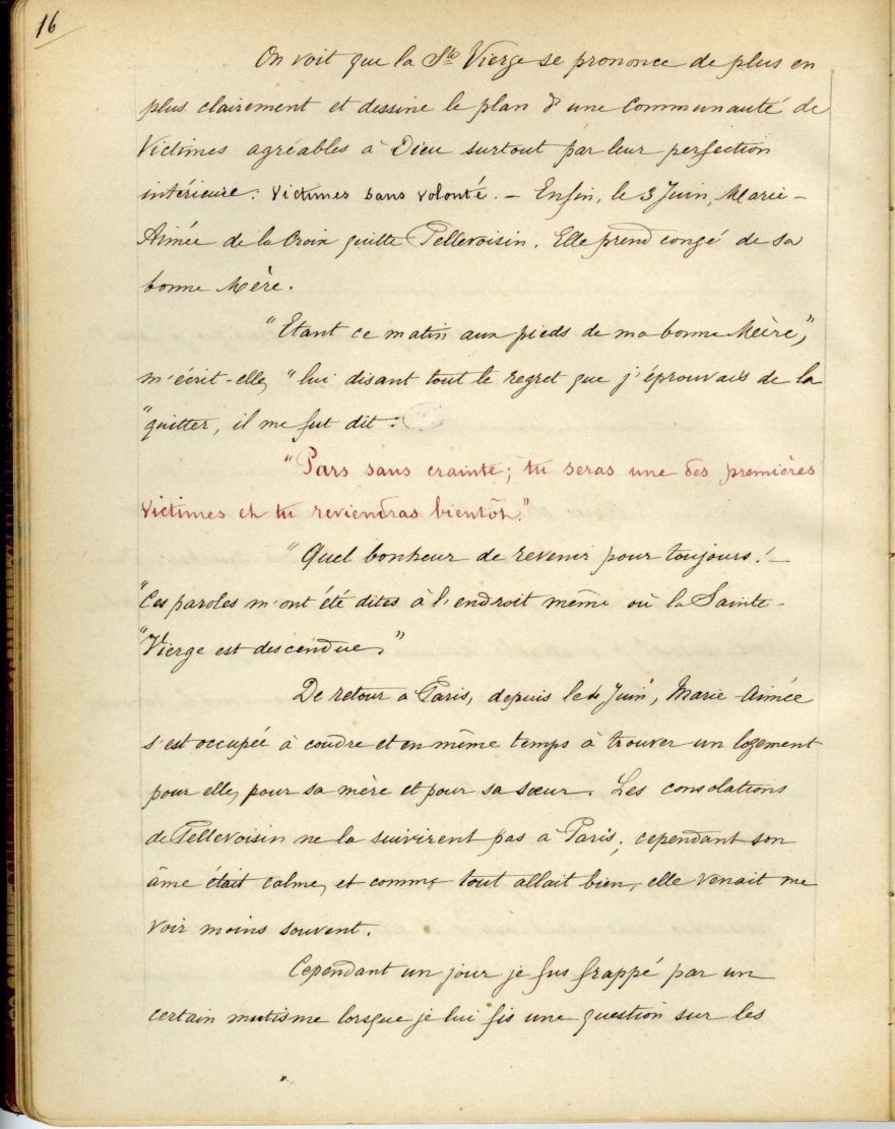 16
On voit que la Ste Vierge se prononce de plus en
plus clairement et dessine le plan d'une Communauté de
Victimes agréables à Dieu surtout par leur perfection
intérieure : Victimes sans volonté. — Enfin, le 3 Juin, Marie-
Aimée de la Croix quitte Pellevoisin. Elle prend congé de sa
bonne Mère.
"Etant ce matin aux pieds de ma bonne Mère,"
m'écrit-elle, "lui disant tout le regret que j'éprouvais de la
"quitter, il me fut dit :
"Pars sans crainte ; tu seras une des premières
victimes et tu reviendras bientôt."
"Quel bonheur de revenir pour toujours ! —
"Ces paroles m'ont été dites à l'endroit même où la Sainte-
"Vierge est descendue."
De retour à Paris, depuis le 4 Juin, Marie-Aimée
s'est occupée à coudre et en même temps à trouver un logement
pour elle, pour sa mère et pour sa sœur. Les consolations
de Pellevoisin ne la suivirent pas à Paris ; cependant son
âme était calme, et comme tout allait bien, elle venait me
voir moins souvent.
Cependant un jour je fus frappé par un
certain mutisme lorsque je lui fis une question sur les